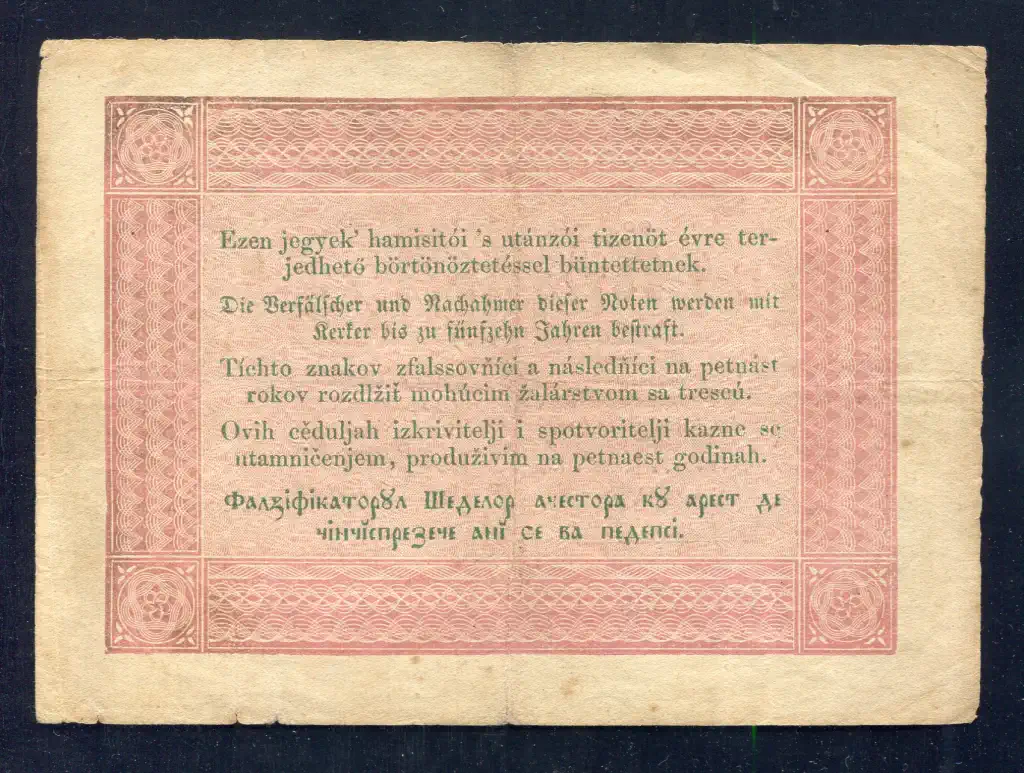 Ezen jegyek' hamisitói 's utánzói tizenöt évre ter-
jedhető börtönöztetéssel büntettetnek.
Die Verfälscher und Nachahmer dieser Noten werden mit
Kerker bis zu fünfzehn Jahren bestraft.
Tíchto znakov zfalssovňíci a následňíci na petnást
rokov rozdlžiť mohúcim žalárstvom sa trescú.
Ovih cěduljah izkrivitelji i spotvoritelji kazne se
utamničenjem, produživim na petnaest godinah.
Фалꙃіфікаторꙋл Шеделор ачестора кꙋ арест де
чінчіспрезече анї се ва педепсі.